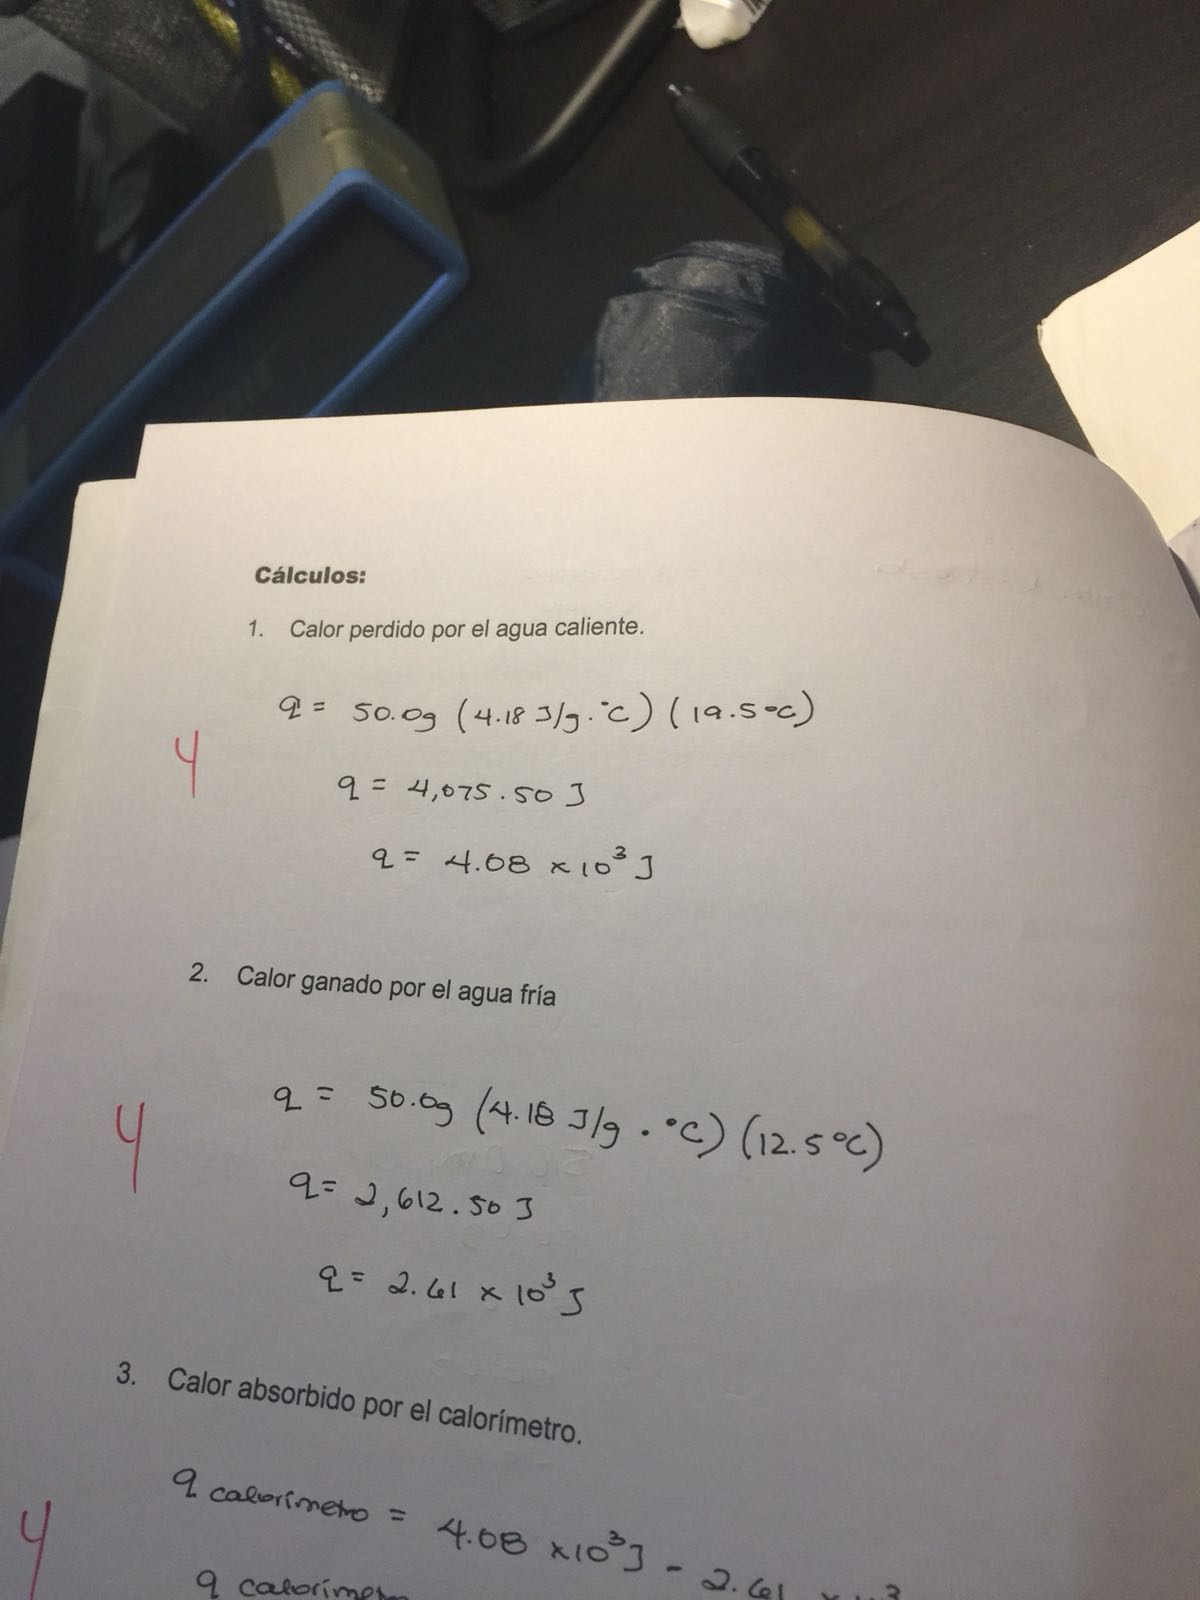 Cálculos:
1. Calor perdido por el agua caliente.
q = 50.0g (4.18 J/g.°C) (19.5°C)
4
q = 4,075.50 J
q = 4.08 x 10³ J
2. Calor ganado por el agua fría
q = 50.0g (4.18 J/g . °C) (12.5°C)
4
q = 2,612.50 J
q = 2.61 x 10³ J
3. Calor absorbido por el calorímetro.
q calorímetro = 4.08 x10³J - 2.61
4
q